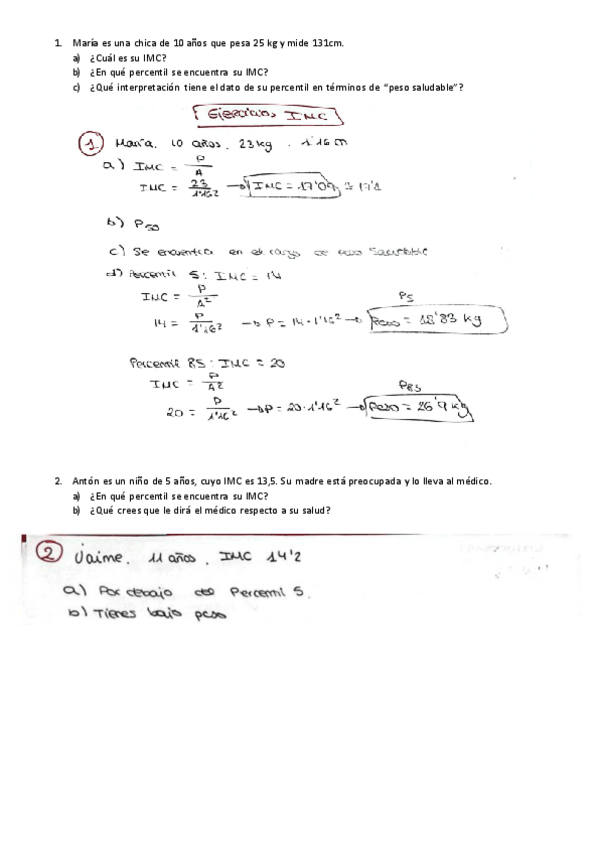 1. María es una chica de 10 años que pesa 25 kg y mide 131cm.
a) ¿Cuál es su IMC?
b) ¿En qué percentil se encuentra su IMC?
c) ¿Qué interpretación tiene el dato de su percentil en términos de "peso saludable"?
Ejercicios IMC
1 María. 10 años. 23kg. 1'16m
a) IMC = P/A
IMC = 23/1'16² → IMC = 17'09 ≅ 17'1
b) P50
c) Se encuentra en el rango de peso saludable
d) Percentil 5: IMC = 14
IMC = P/A²
P5
14 = P/1'16² → P = 14·1'16² → Peso = 18'83 kg
Percentil 85: IMC = 20
IMC = P/A²
P85
20 = P/1'16² → P = 20·1'16² → Peso = 26'9 kg
2. Antón es un niño de 5 años, cuyo IMC es 13,5. Su madre está preocupada y lo lleva al médico.
a) ¿En qué percentil se encuentra su IMC?
b) ¿Qué crees que le dirá el médico respecto a su salud?
2 Jaime. 11 años. IMC 14'2
a) Por debajo del Percentil 5.
b) Tienes bajo peso